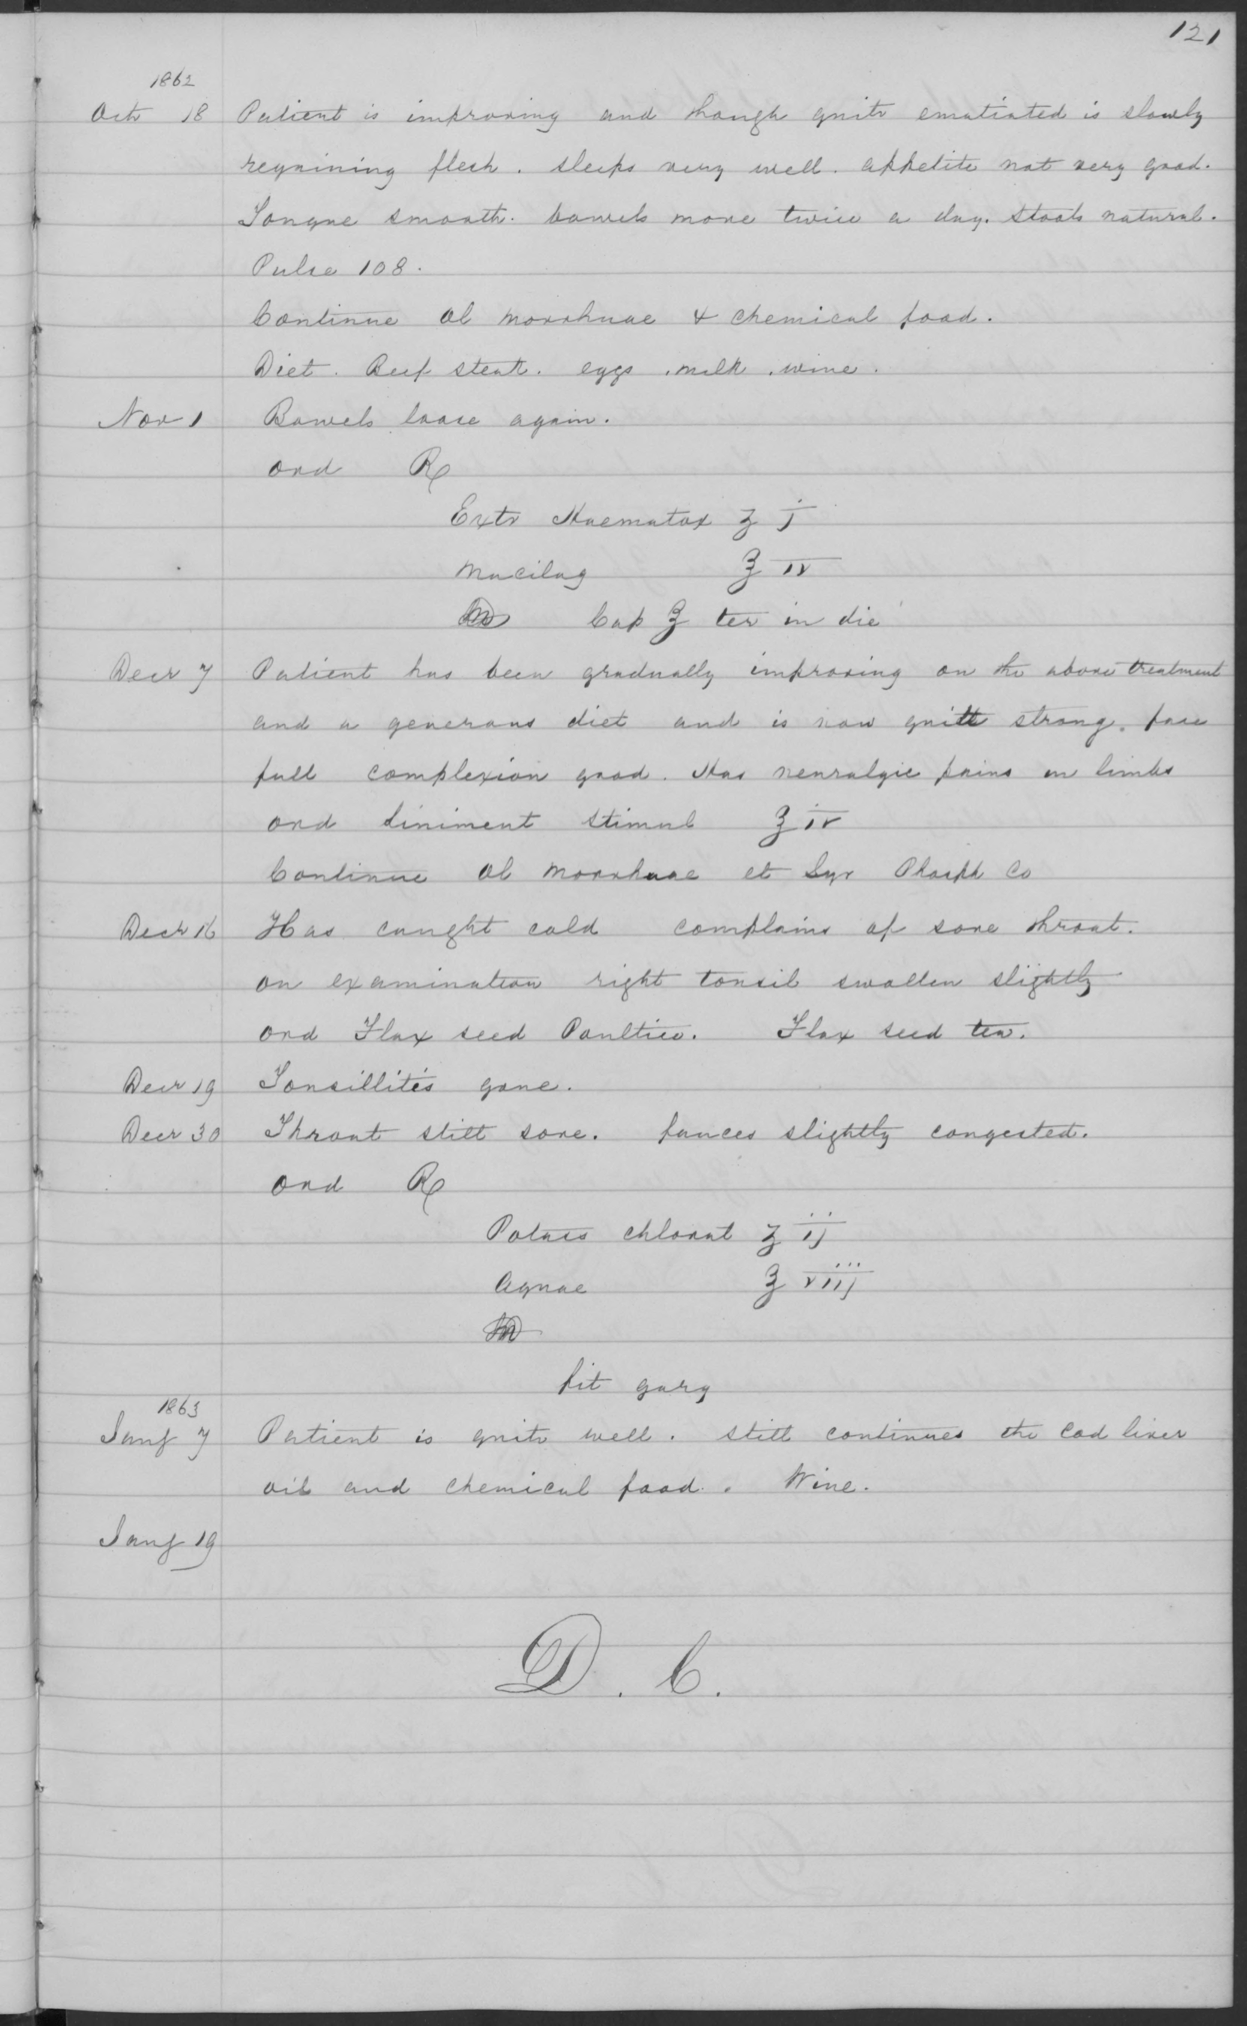 121
1862
Octr 18 Patient is improving and though quite ematiated is slowly
regaining flesh. sleeps very well. appetite not very good.
Tongue smooth. bowels move twice a day. Stools natural.
Pulse 108.
Continue Ol Morrhuae & chemical food.
Diet. Beef steak. eggs. milk. wine.
Nov 1 Bowels loose again.
Ord ℞
Extr Haematox ʒ j
Mucilag ℥ iv
M Cap ʒ ter in die
Decr 7 Patient has been gradually improving on the above treatment
and a generous diet and is now quite strong. face
full complexion good. Has neuralgic pains in limbs
Ord Liniment Stimul ℥ iv
Continue Ol Morrhuae et Syr Phosph Co
Decr 16 Has caught cold complains of sore throat.
on examination right tonsil swollen slightly
Ord Flax seed Poultice. Flax seed tea.
Decr 19 Tonsillites gone.
Decr 30 Throat still sore. fauces slightly congested.
Ord ℞
Potass chlorat ʒ ij
Aquae ℥ viij
M
fit garg
1863
Jany 7 Patient is quite well. still continues the Cod liver
oil and chemical food. Wine.
Jany 19
D. C.